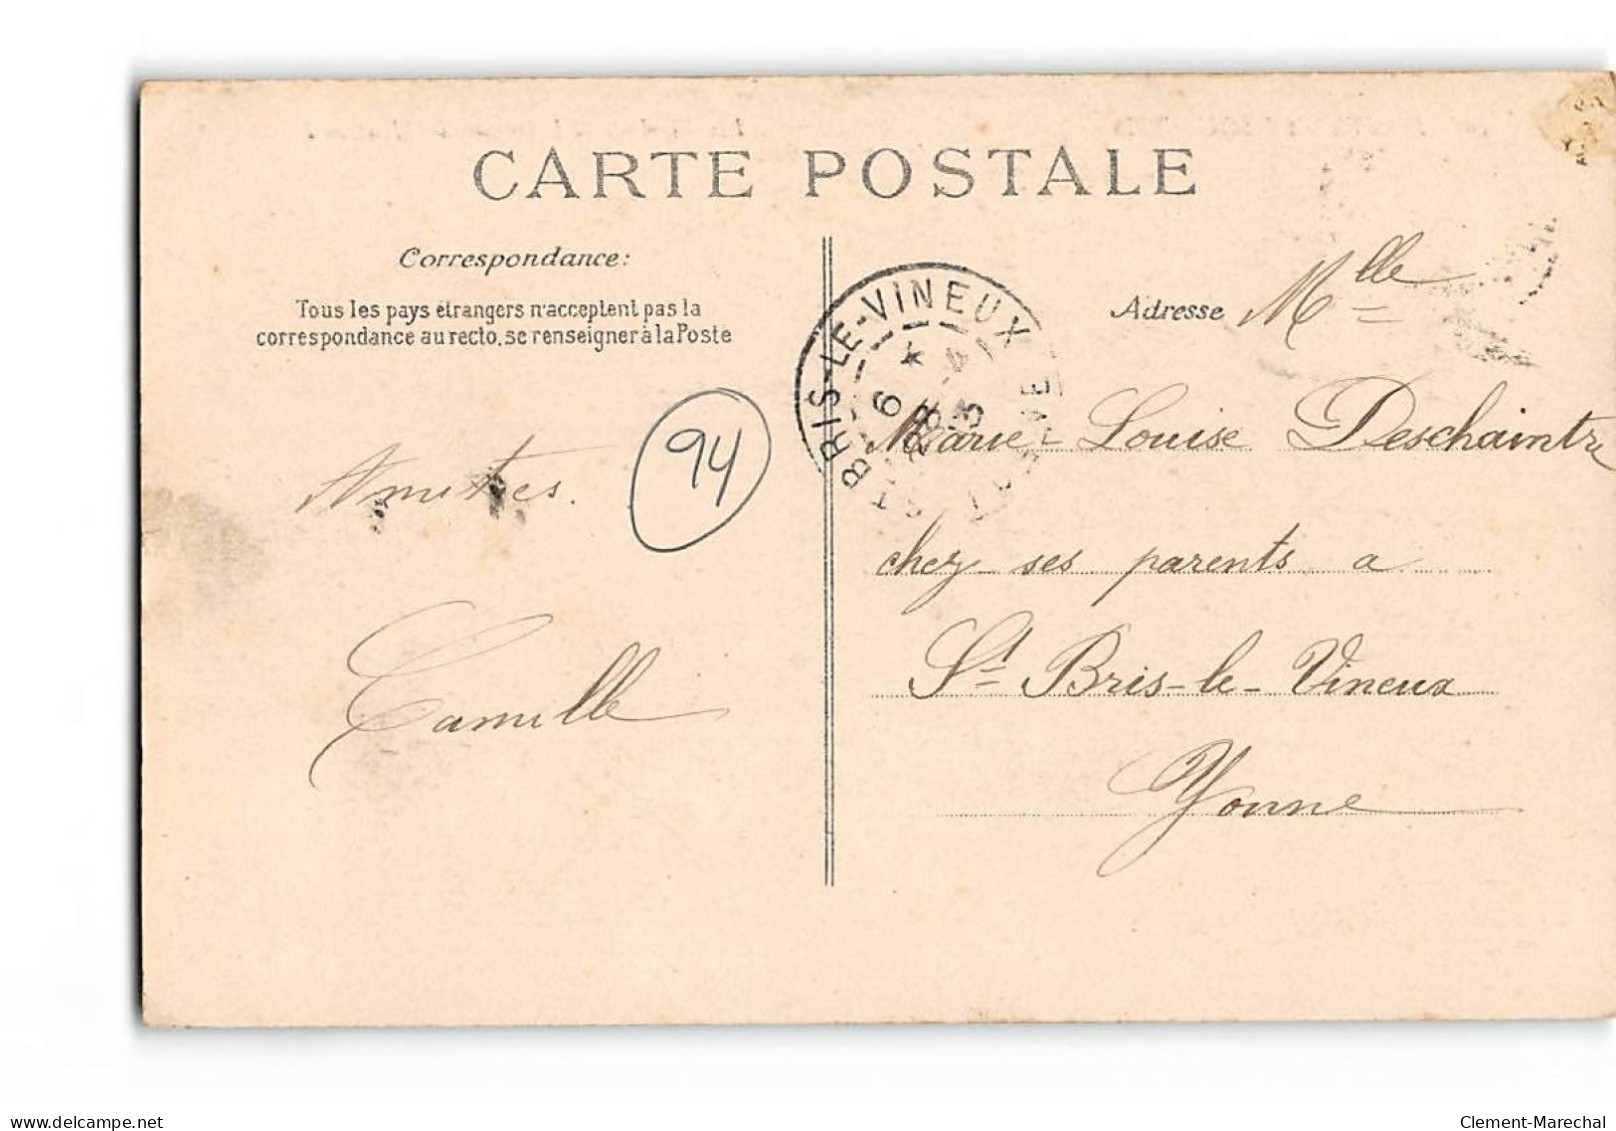 CARTE POSTALE
Correspondance:
Tous les pays étrangers n'acceptent pas la
correspondance au recto, se renseigner à la Poste
Adresse Mlle
Marie-Louise Deschaintre
chez ses parents a
St Bris-le-Vineux
Yonne
Amitiés.
Camille
94
ST BRIS-LE-VINEUX
6
28
delcampe.net
Clement-Marechal